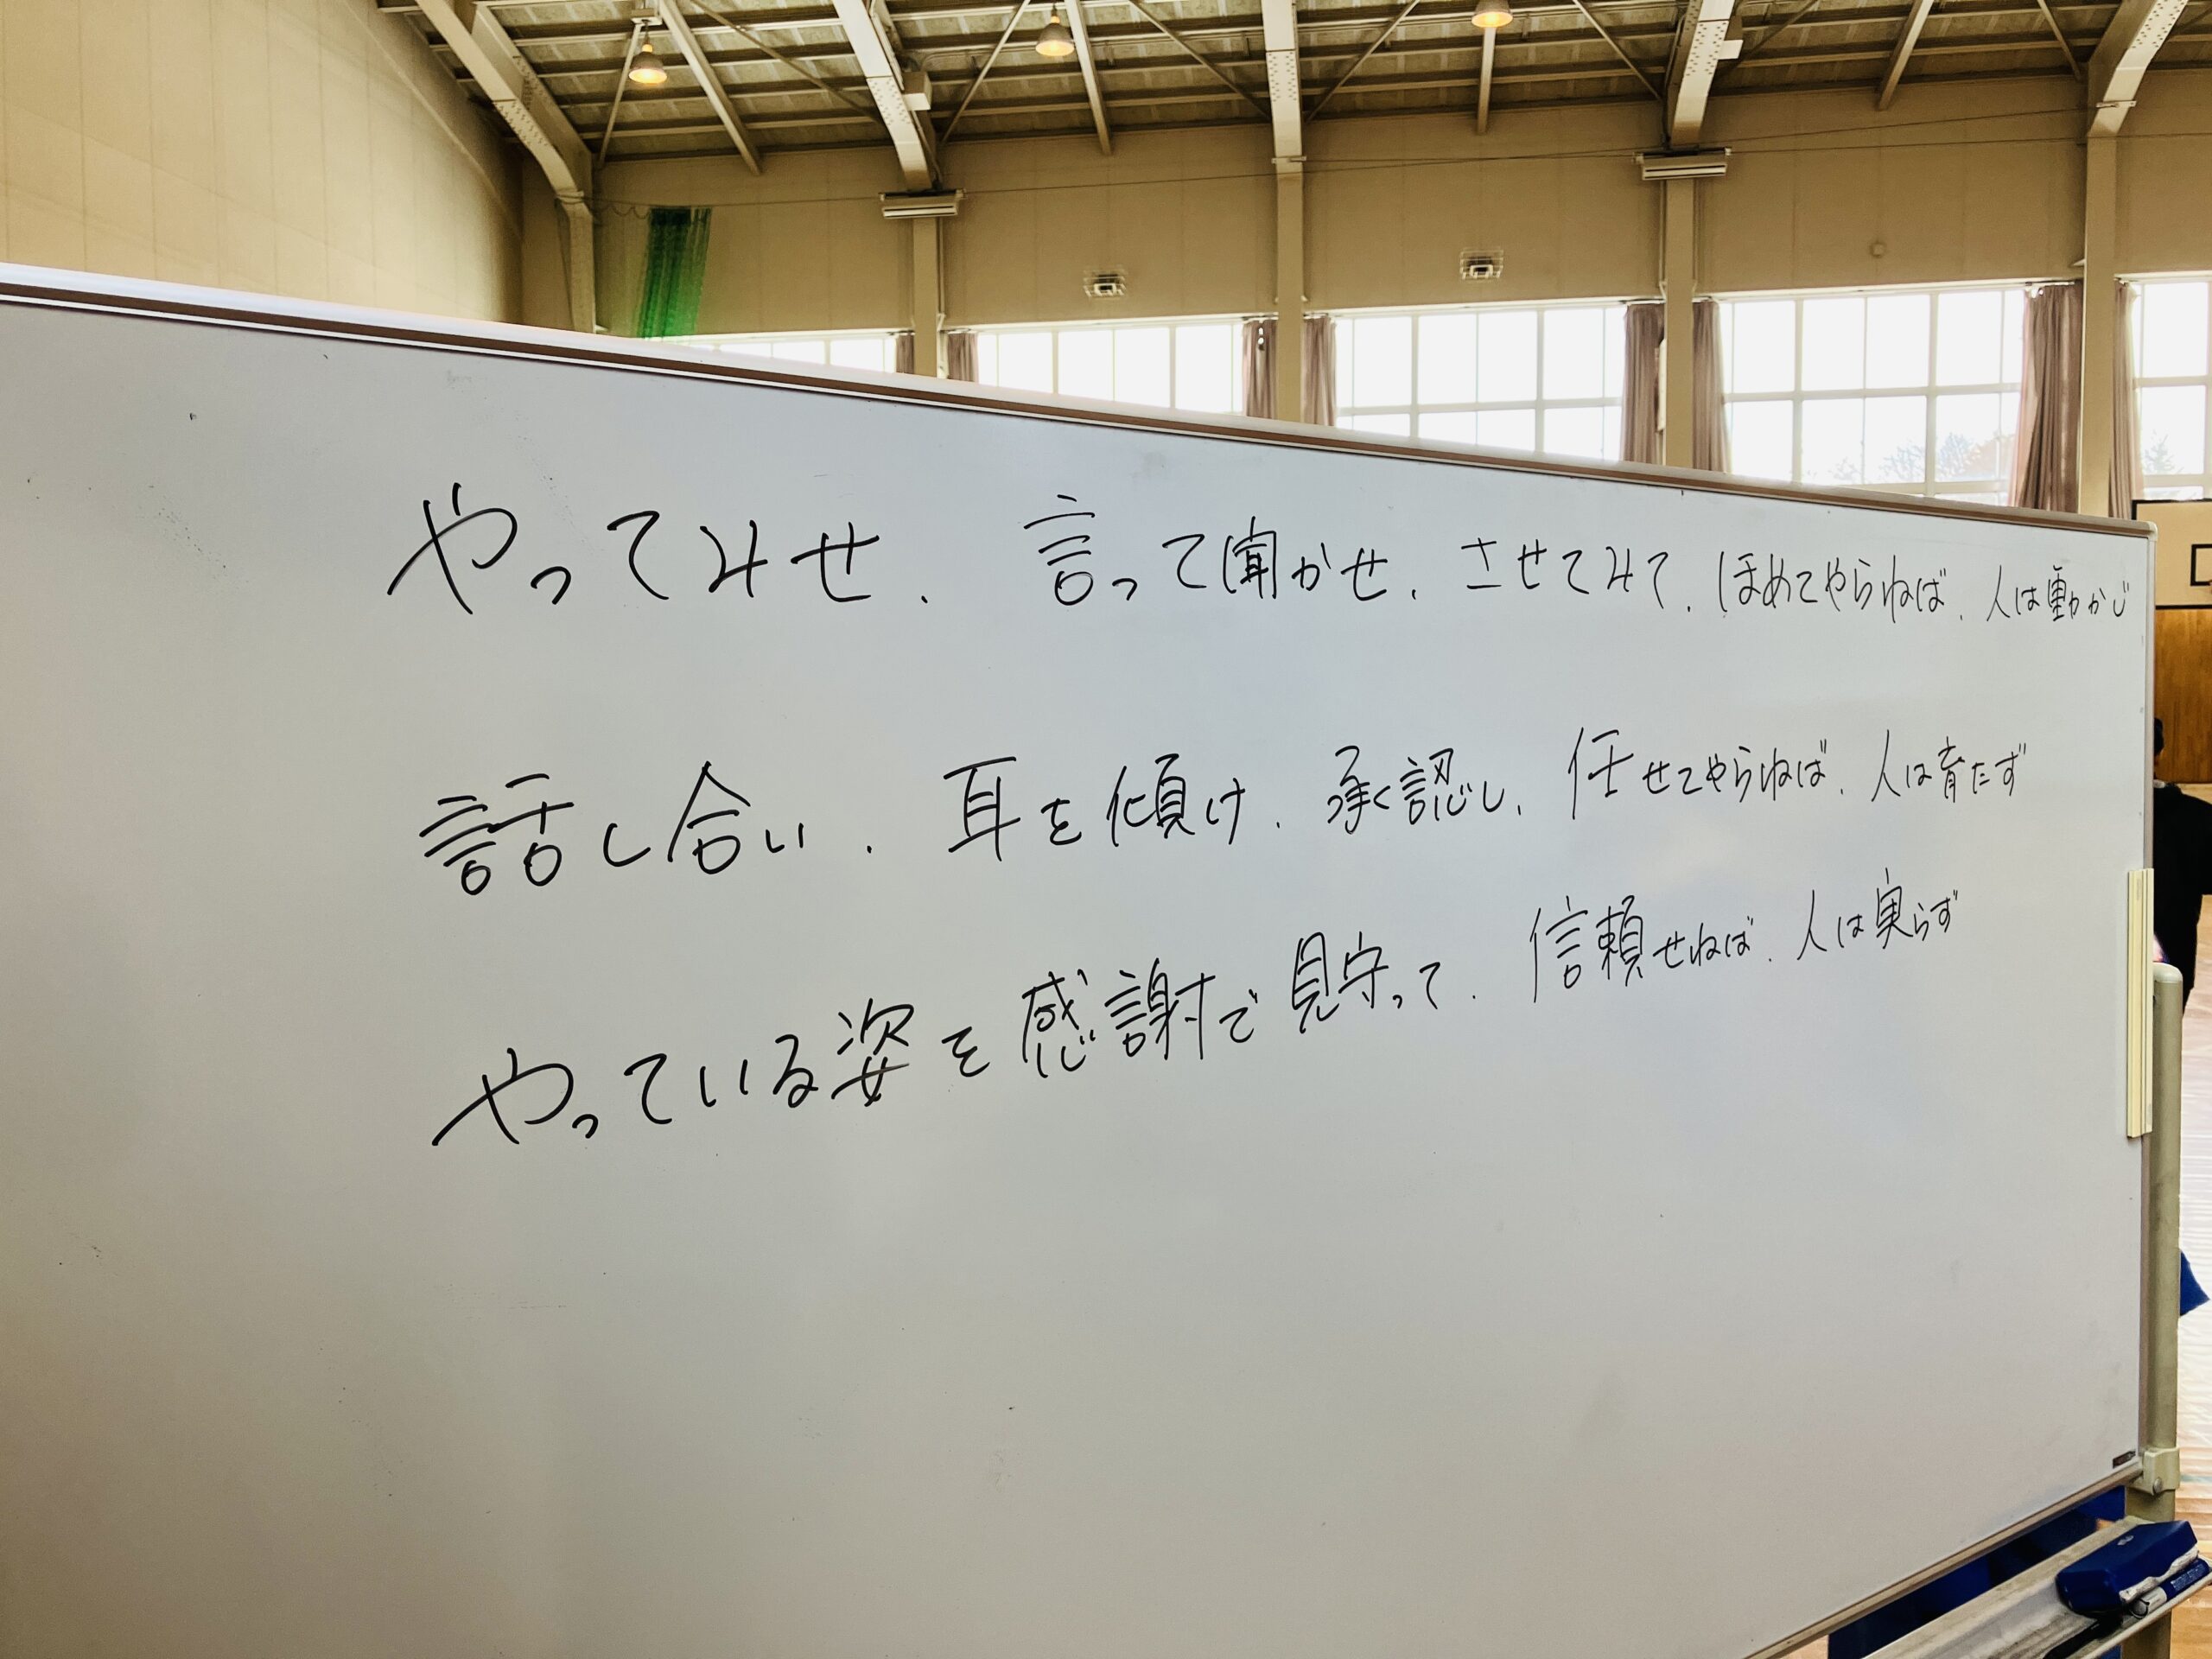 やってみせ、言って聞かせ、させてみて、ほめてやらねば、人は動かじ
話し合い、耳を傾け、承認し、任せてやらねば、人は育たず
やっている姿を感謝で見守って、信頼せねば、人は実らず